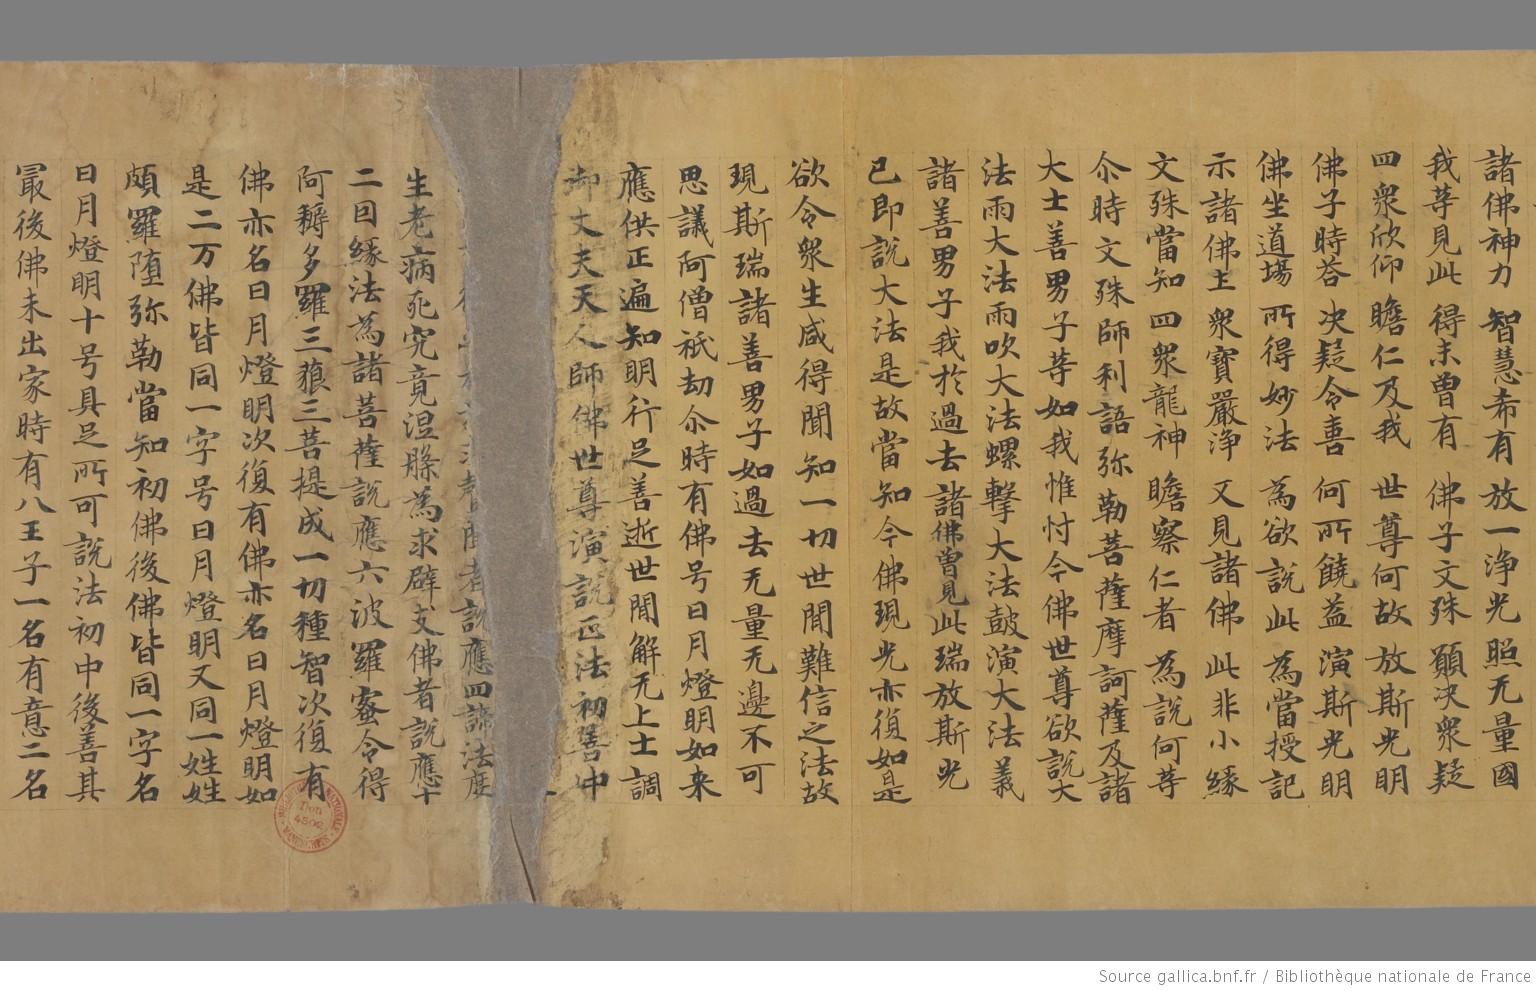 諸佛神力 智慧希有 放一淨光 照无量國
我等見此 得未曾有 佛子文殊 願决衆疑
四衆欣仰 瞻仁及我 世尊何故 放斯光明
佛子時荅 决疑令喜 何所饒益 演斯光明
佛坐道場 所得妙法 為欲說此 為當授記
示諸佛土 衆寶嚴淨 又見諸佛 此非小緣
文殊當知 四衆龍神 瞻察仁者 為說何等
尒時文殊師利語弥勒菩薩摩訶薩及諸
大士善男子等如我惟忖今佛世尊欲說大
法雨大法雨吹大法螺擊大法鼓演大法義
諸善男子我於過去諸佛曾見此瑞放斯光
已即說大法是故當知今佛現光亦復如是
欲令衆生咸得聞知一切世間難信之法故
現斯瑞諸善男子如過去无量无邊不可
思議阿僧祇劫尒時有佛号日月燈明如来
應供正遍知明行足善逝世間解无上士調
御丈夫天人師佛世尊演說正法初善中
聞者說應四諦法度
生老病死究竟涅槃為求辟支佛者說應十
二因緣法為諸菩薩說應六波羅蜜令得
阿耨多羅三藐三菩提成一切種智次復有
佛亦名日月燈明次復有佛亦名日月燈明如
是二万佛皆同一字号日月燈明又同一姓姓
頗羅堕弥勒當知初佛後佛皆同一字名
日月燈明十号具足所可說法初中後善其
冣後佛未出家時有八王子一名有意二名
BIBLIOTHÈQUE NATIONALE MANUSCRITS
Don
4502
Source gallica.bnf.fr / Bibliothèque nationale de France